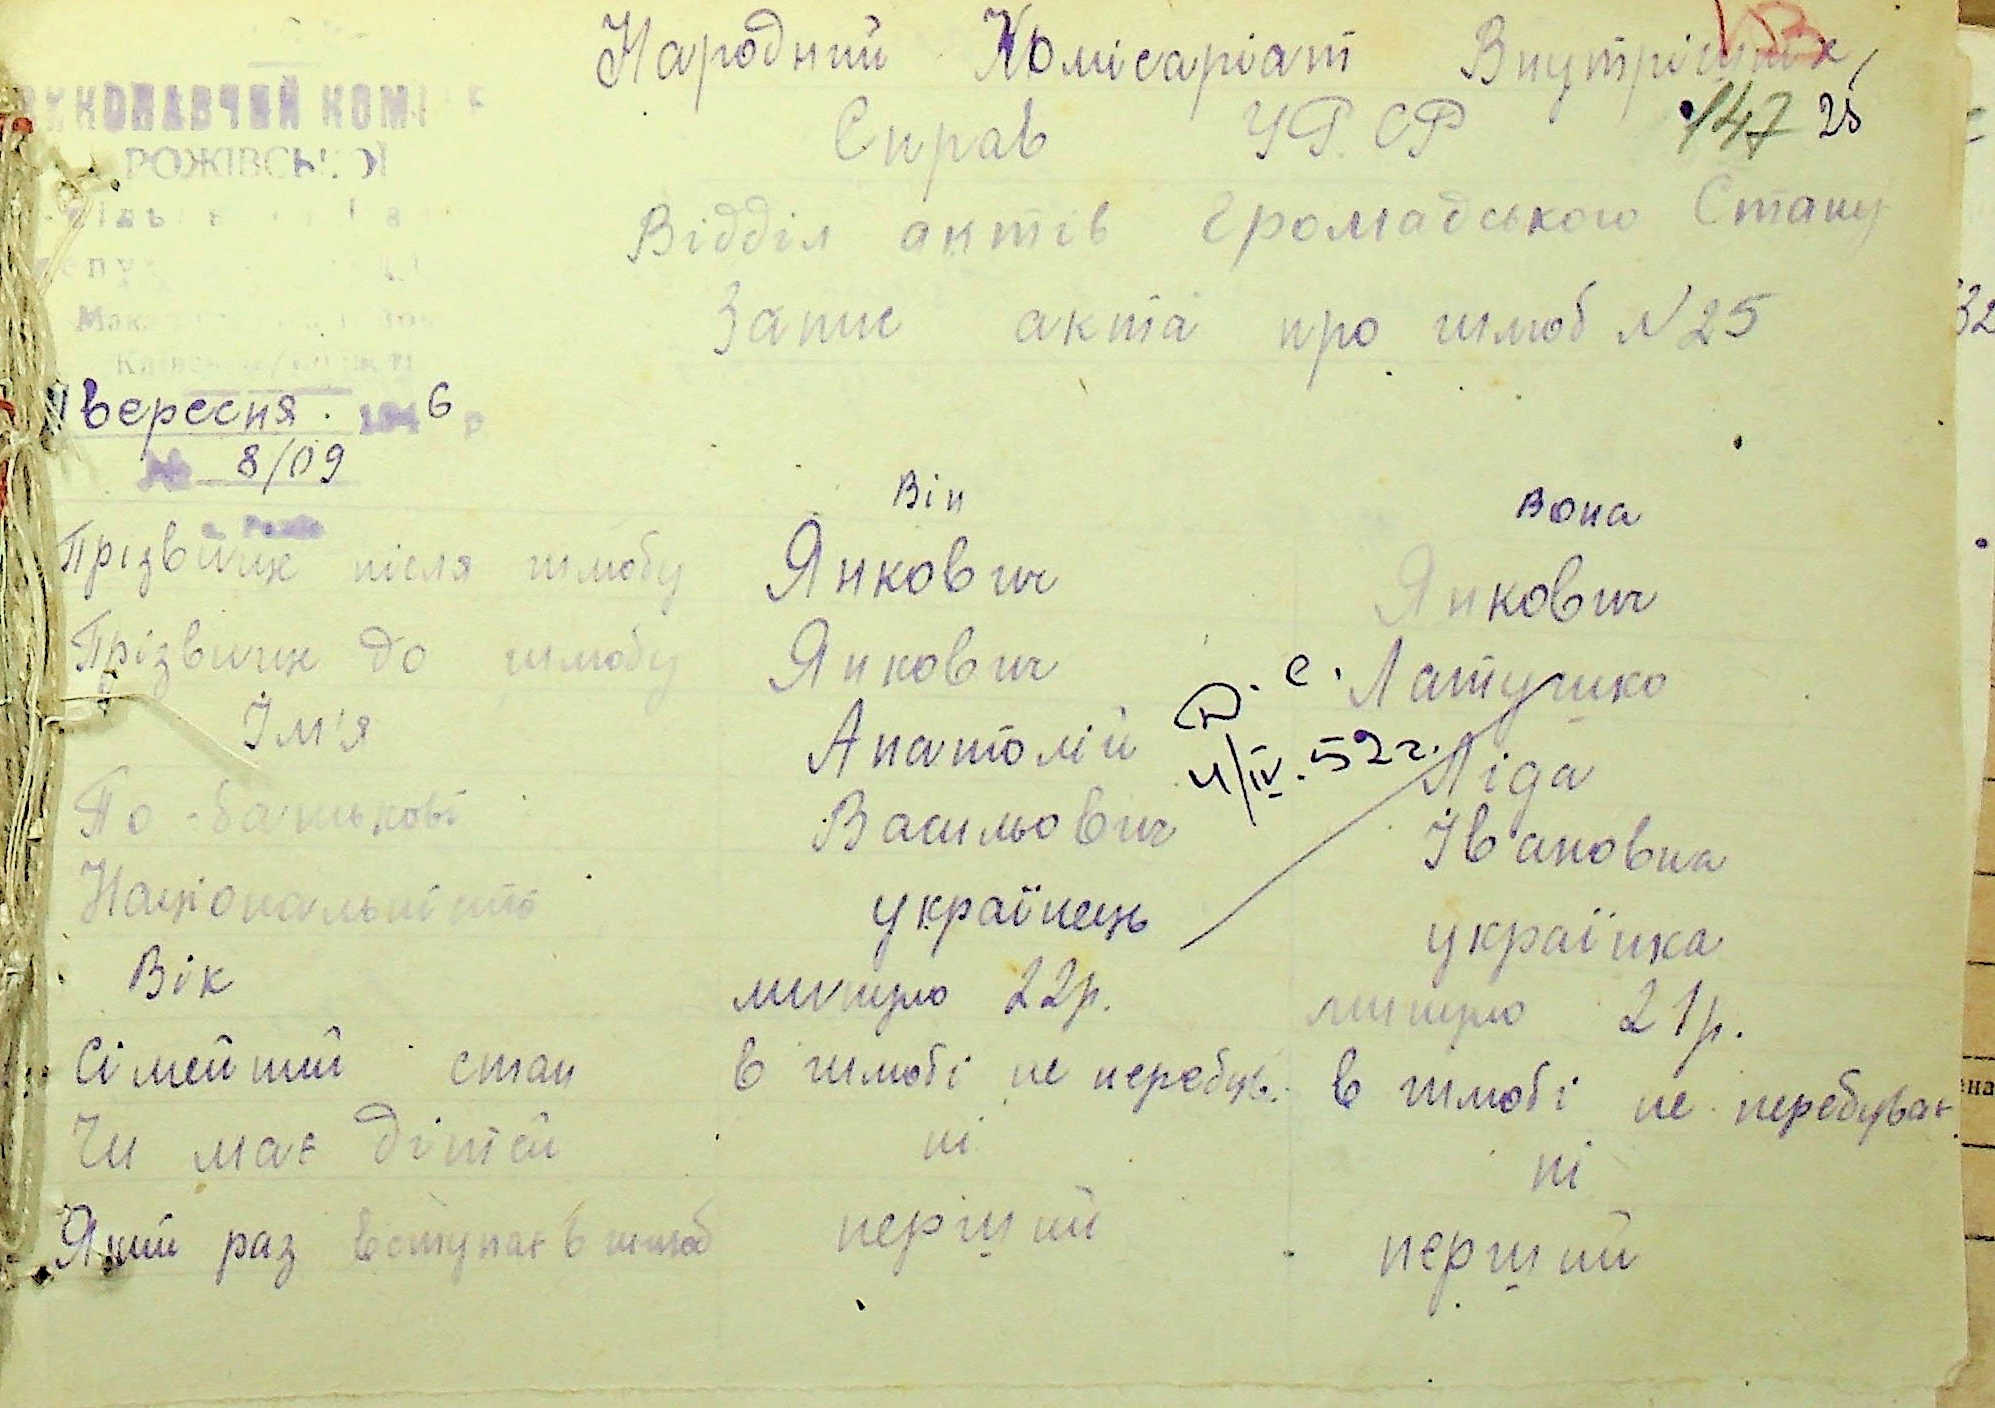 Народний Комісаріат Внутрішніх
Справ УРСР
147 25
Відділ актів Громадського Стану
Запис акта про шлюб N 25
ВИКОНАВЧИЙ КОМІ
РОЖІВСЬКОЇ
вересня 1946 р
№ 8/09
с. Рожів
Він Вона
Прізвище після шлюбу Янкович Янкович
Прізвище до шлюбу Янкович Латушко
Ім'я Анатолій Ліда
По-батькові Васильович Івановна
Національність українець українка
Вік минуло 22р. минуло 21р.
Сімейний стан в шлюбі не перебув. в шлюбі не перебуває
Чи має дітей ні ні
Який раз вступає в шлюб перший перший
4/IV.52 г.